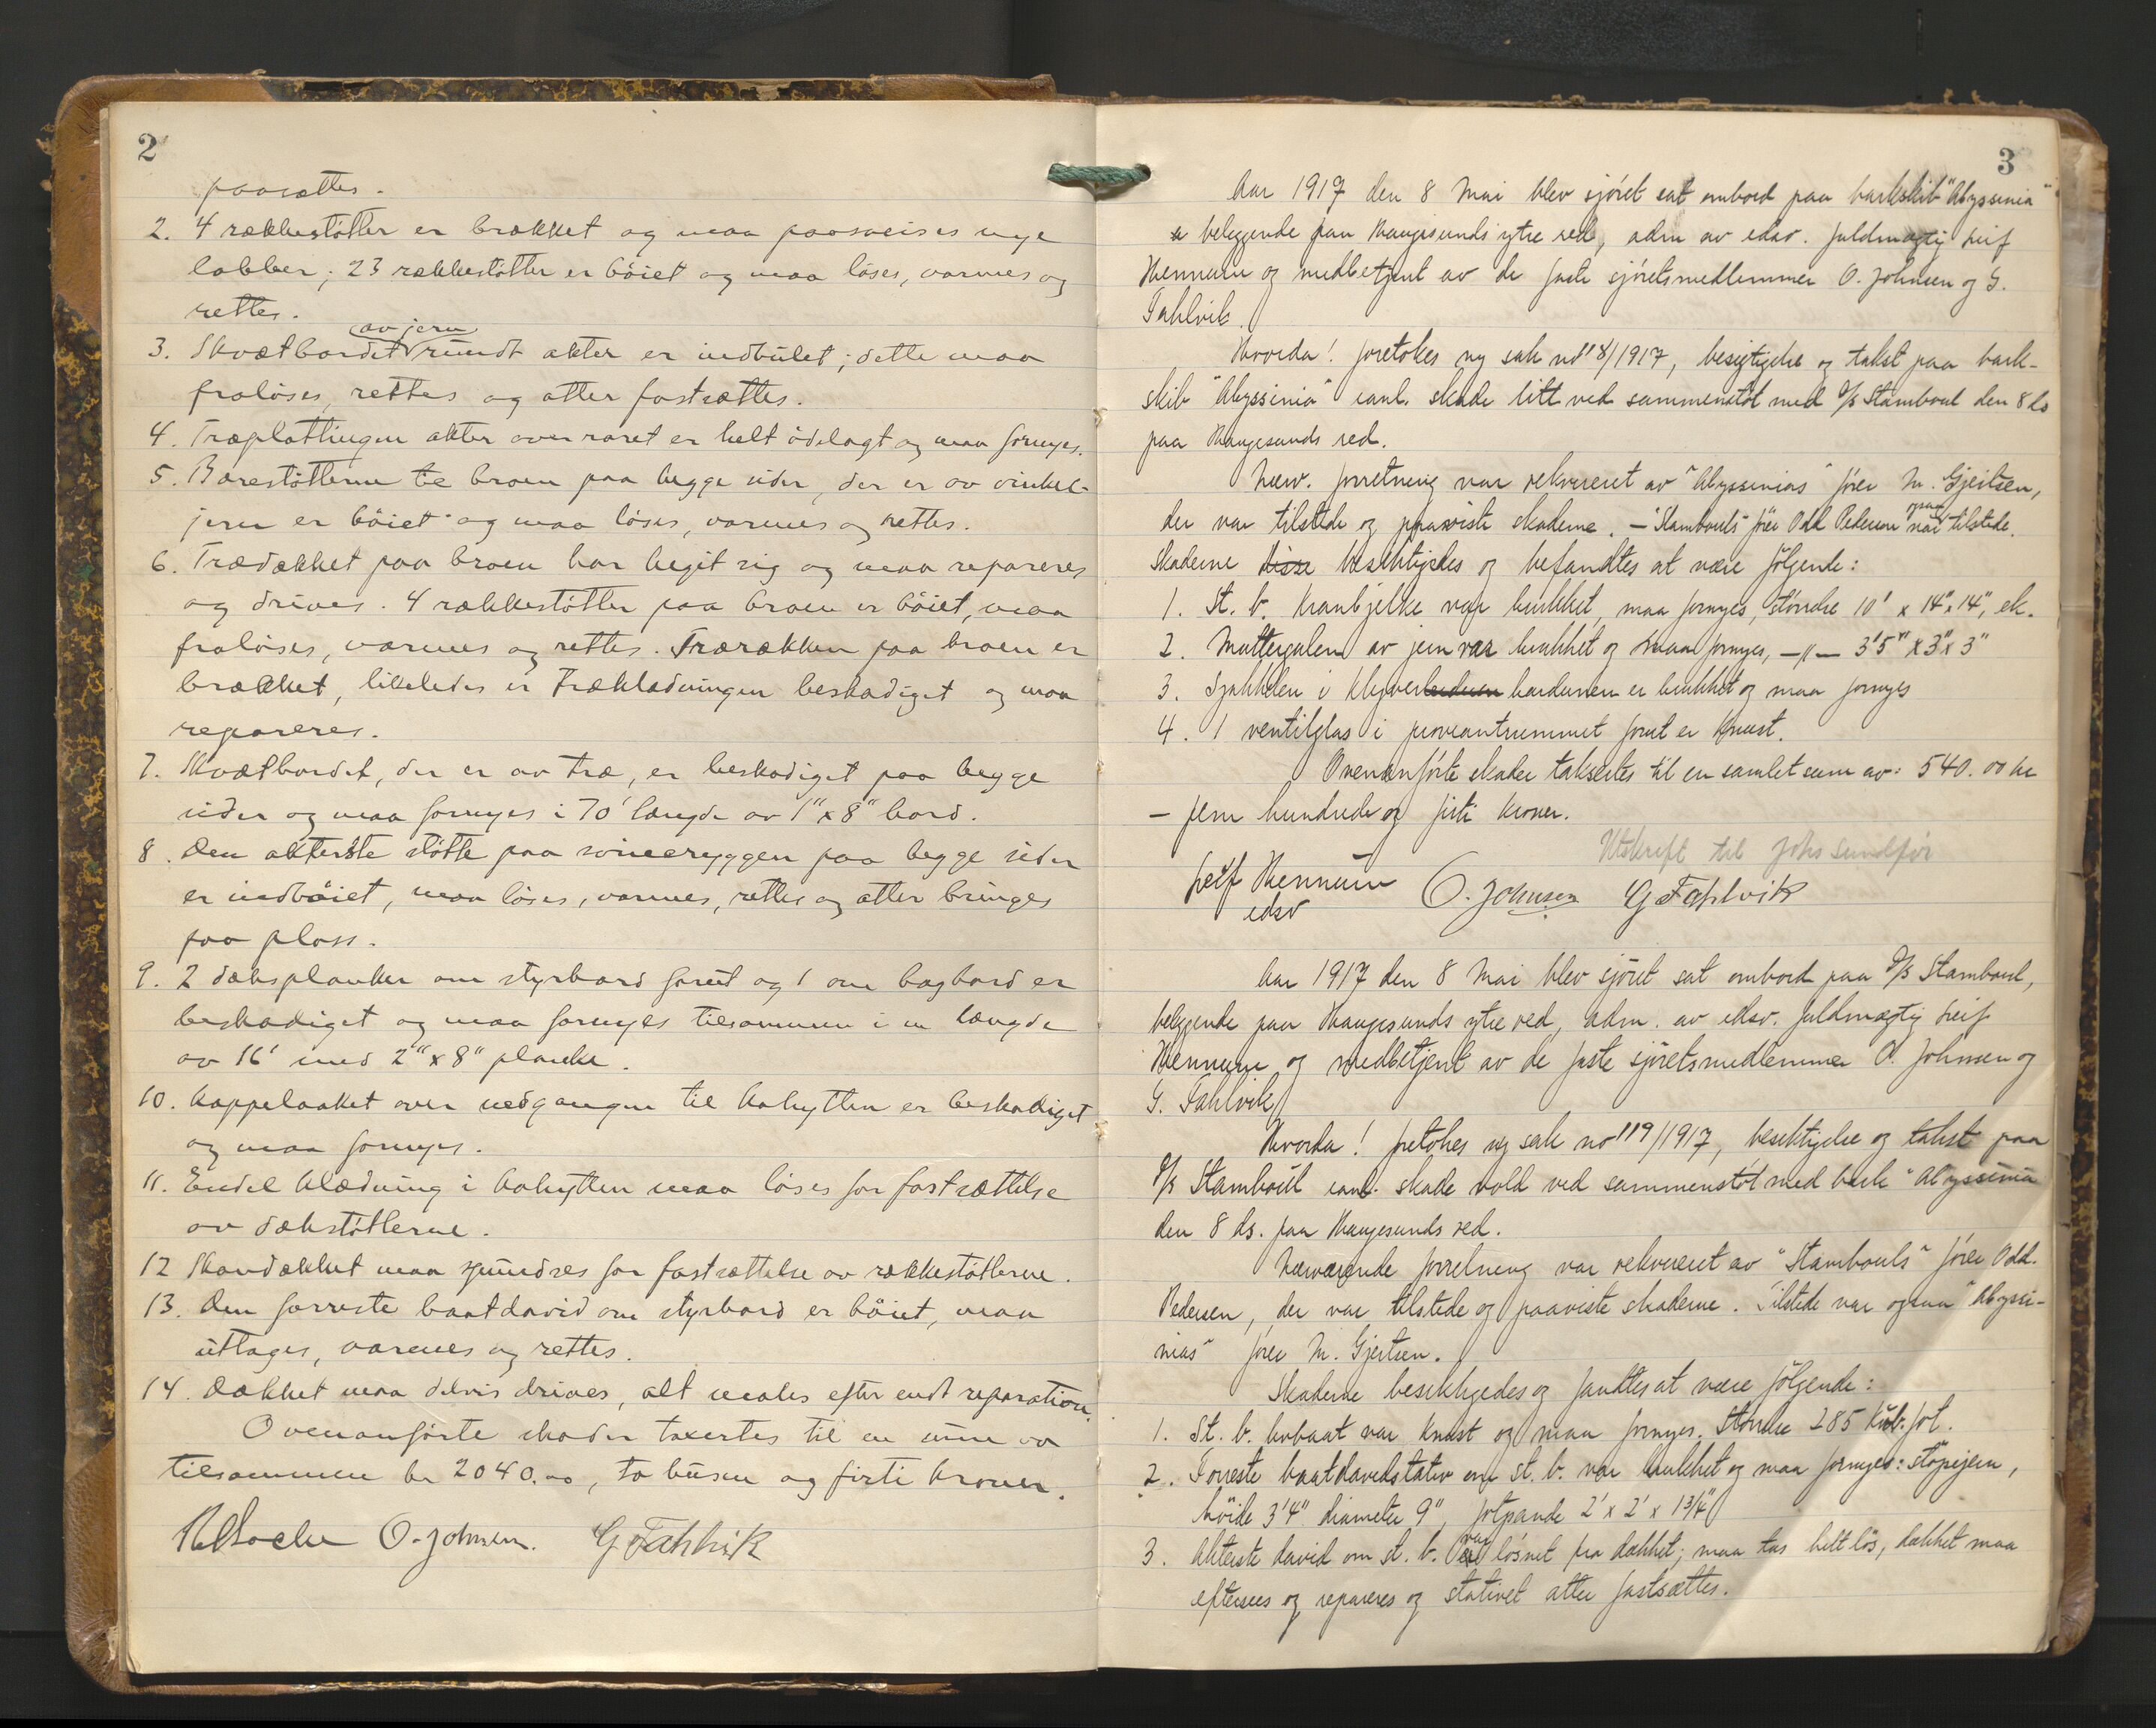 2
paasættes.
2. 4 rækkestøtter er brækket og maa paasveises nye
labber; 23 rækkestøtter er böiet og maa löses, varmes og
rettes.
av jern
3. Skvætbordet rundt akter er indbulet; dette maa
fralöses, rettes og atter fastsættes.
4. Træplattingen akter over roret er helt ödelagt og maa fornyes.
5. Bærestötterne til broen paa begge sider, der er av vinkel-
jern er böiet og maa löses, varmes og rettes.
6. Trædækket paa broen har begit sig og maa repareres
og drives. 4 rækkestötter paa broen er böiet, maa
fralöses, varmes og rettes. Trærækken paa broen er
brækket, likeledes er Træklædningen beskadiget og maa
repareres.
7. Skvætbordet, der er av træ, er beskadiget paa begge
sider og maa fornyes i 70' længde av 1" x 8" bord.
8. Den akterste stötte paa svineryggen paa begge sider
er indböiet, maa löses, varmes, rettes og atter bringes
paa plass.
9. 2 dæksplanker om styrbord forut og 1 om bagbord er
beskadiget og maa fornyes tilsammen i en længde
av 16' med 2" x 8" planke.
10. Kappelaaket over nedgangen til kahytten er beskadiget
og maa fornyes.
11. Endel klædning i kahytten maa löses for fastsættelse
av dækstötterne.
12 Skandækket maa spundses for fastsættelse av rækkestötterne.
13. Den forreste baatdavid om styrbord er böiet, maa
uttages, varmes og rettes.
14. Dækket maa delvis drives, alt males efter endt reparation.
Ovenanförte skader taxertes til en sum av
tilsammen kr 2040.00, to tusen og firti kroner.
O. Johnsen. G Fahlvik
3
Aar 1917 den 8 Mai blev sjöret sat ombord paa barkskib "Abyssinia"
beliggende paa Haugesunds ytre red, adm av edsv. fuldmægtig Leif
Hennum og medbetjent av de faste sjöretsmedlemmer O. Johnsen og G.
Fahlvik.
Hvorda! foretokes ny sak no 118/1917, besigtigelse og takst paa bark-
skib "Abyssinia" eanl. skade litt ved sammenstöt med D/S Stamboul den 8 ds
paa Haugesunds red.
Nærv. forretning var rekvireret av "Abyssinias" förer M. Gjertsen,
der var tilstede og paaviste skaderne. – "Stambouls" förer Odd Pedersen var ogsaa tilstede.
Skaderne disse besiktigedes og befandtes at være fölgende:
1. St. b. kranbjelke var brukket, maa fornyes, störrelse 10' x 14" x 14", ek.
2. Muttergalen av jern var brukket og maa fornyes, –"– 3'5" x 3" x 3"
3. Sjakkelen i klyverbardunen er brukket og maa fornyes
4. 1 ventilglas i proviantrummet forut er knust.
Ovenanförte skader taksertes til en samlet sum av: 540.00 kr
– fem hundrede og firti kroner.
Utskrift til Johs Sundför
Leif Hennum O. Johnsen G Fahlvik
edsv
Aar 1917 den 8 Mai blev sjöret sat ombord paa D/S Stamboul,
beliggende paa Haugesunds ytre red, adm. av edsv. fuldmægtig Leif
Hennum og medbetjent av de faste sjöretsmedlemmer O. Johnsen og
G. Fahlvik
Hvorda! foretokes ny sak no 119/1917, besiktigelse og takst paa
D/S Stamboul eanl. skade vold ved sammenstöt med bark "Abyssinia
den 8 ds. paa Haugesunds red.
Nærværende forretning var rekvireret av "Stambouls" förer Odd.
Pedersen, der var tilstede og paaviste skaderne. Tilstede var ogsaa "Abyssi-
nias" förer M. Gjertsen.
Skaderne besiktigedes og fandtes at være fölgende:
1. St. b. livbaat var knust og maa fornyes. Störrelse 285 Kub. fot.
2. Forreste baatdavidstativ om st. b. var brukket og maa fornyes: stöpejern,
höide 3'4" diameter 9", fotplande 2' x 2' x 1 3/4"
3. Akterste david om st. b. var lösnet fra dækket; maa tas helt lös, dækket maa
eftersees og repareres og stativet atter fastsættes.